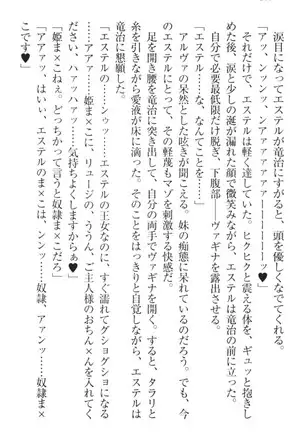 涙目になってエステルが竜治にすがると、頭を優しく撫でてくれた。
「アッ、ンンッ、ンンアアアアア――――ッ♥」
それだけで、エステルは軽く達していた。ヒクヒクと震える体を、ギュッと抱きし
めた後、涙と少しの涎が漏れた顔で微笑みながら、エステルは竜治の前に立った。
自分で必要最低限だけ脱ぎ、下腹部――ヴァギナを露出させる。
「エステル……な、なんてことを……」
アルヴァの呆然とした呟きが聞こえる。妹の痴態に呆れているのだろう。でも、今
のエステルにとって、その軽蔑もマゾを刺激する快感だ。
足を開き腰を竜治に突き出して、自分の両手でヴァギナを開く。すると、タラリと
糸を引きながら愛液が床に滴った。そのことをはっきりと自覚しながら、エステルは
竜治に懇願した。
「エステルの……ンゥッ……エステルの王女なのに、すぐ濡れてグショグショになる
……アアァ……姫ま×こに、リュージの、ううん、ご主人様のおちん×んを入れてく
ださい、ハァッハァッ……気持ちよくしますからぁ♥」
「姫ま×こねぇ。どっちかって言うと奴隷ま×こだろ」
「アアァッ、はい、エステルのま×こは、ンンッ……奴隷、アァンッ……奴隷ま×
こです♥」